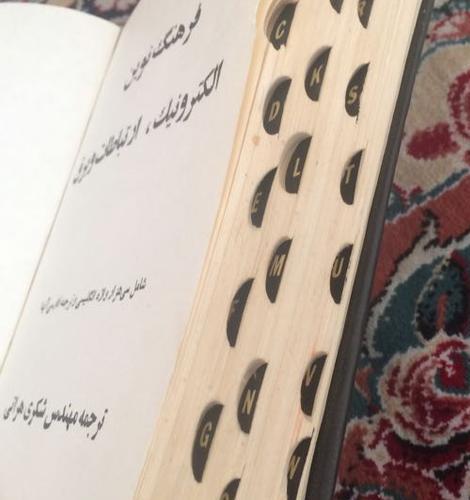 فرهنگ نوین
الکترونیک، ارتباطات و برق
شامل سی هزار واژه انگلیسی با ترجمه فارسی آنها
ترجمه مهندس شکری هراتی
C
D
E
F
G
K
L
M
N
R
S
T
U
V
W